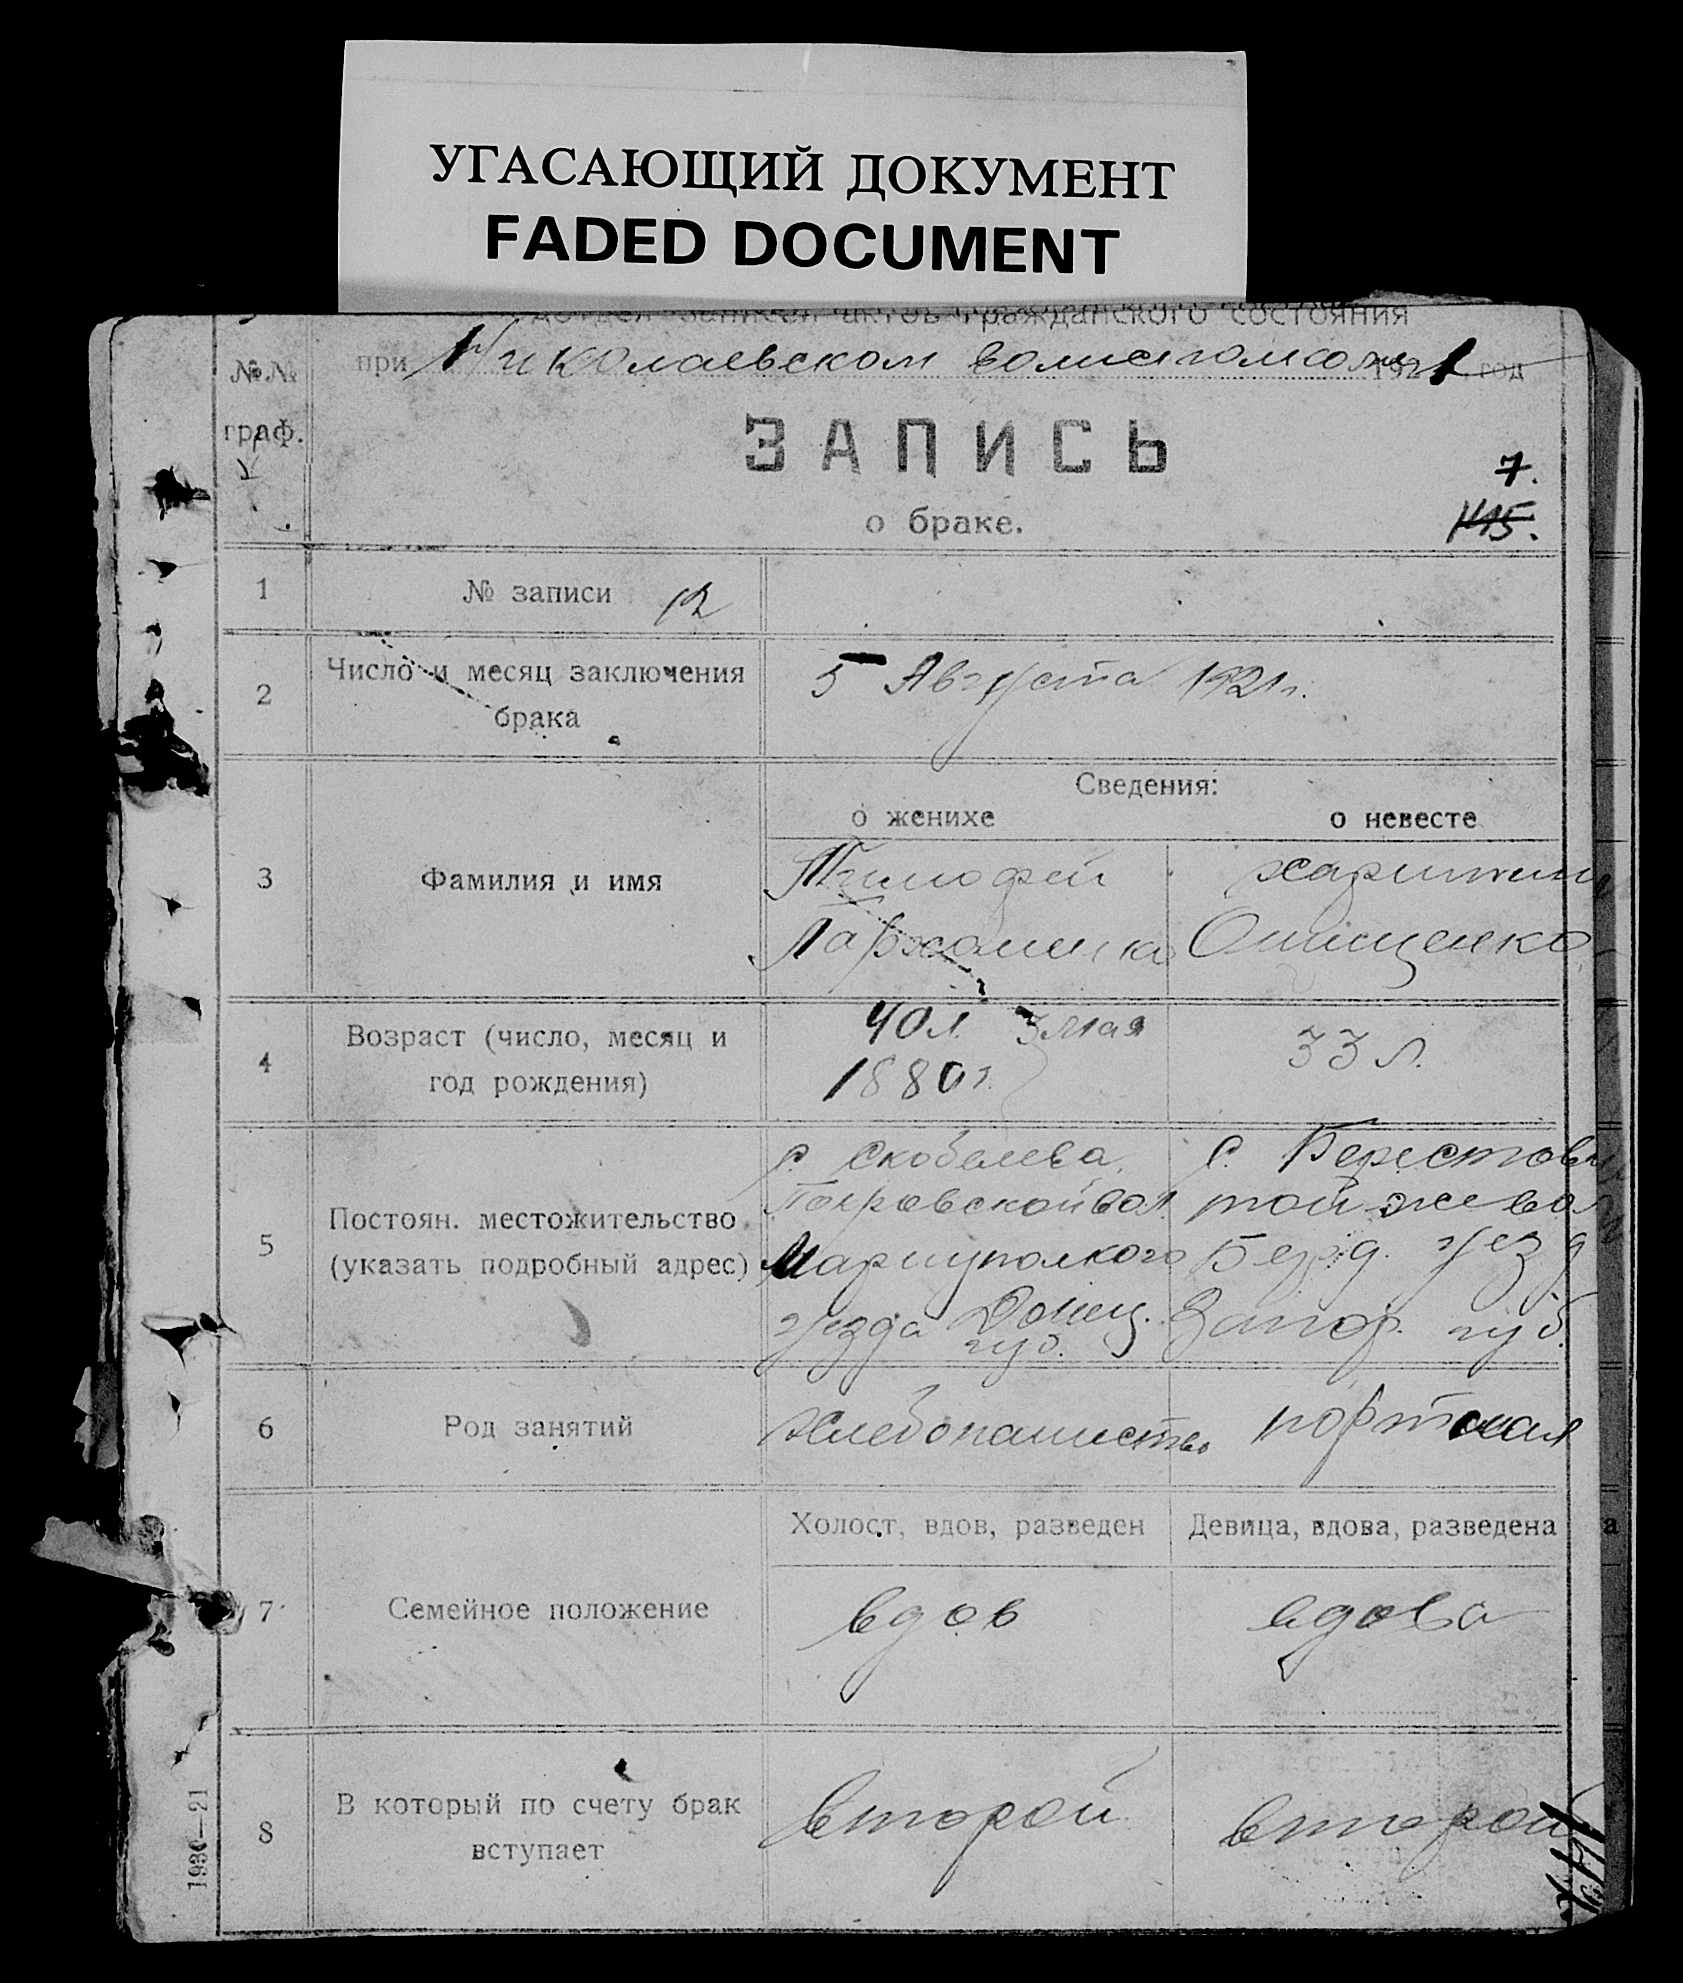 УГАСАЮЩИЙ ДОКУМЕНТ
FADED DOCUMENT
записей актов гражданского состояния
№№ граф.
при Николаевском 1921 год
ЗАПИСЬ
7.
о браке.
115.
1 № записи 12
2 Число и месяц заключения брака
5 Августа 1921 г.
Сведения:
о женихе о невесте
3 Фамилия и имя
Тимофей
Пархоменко
Онищенко
4 Возраст (число, месяц и год рождения)
40 л. 3 мая
1880 г.
33 л.
5 Постоян. местожительство (указать подробный адрес)
с. Скобелева,
Покровской вол.
Мариуполкого
уезда Донец.
губ.
с. Берестовы
той же вол
Берд. уезд
Запор. губ.
6 Род занятий
Хлебопашество
портная
Холост, вдов, разведен Девица, вдова, разведена
7 Семейное положение
вдов вдова
8 В который по счету брак вступает
второй второй
1930—21